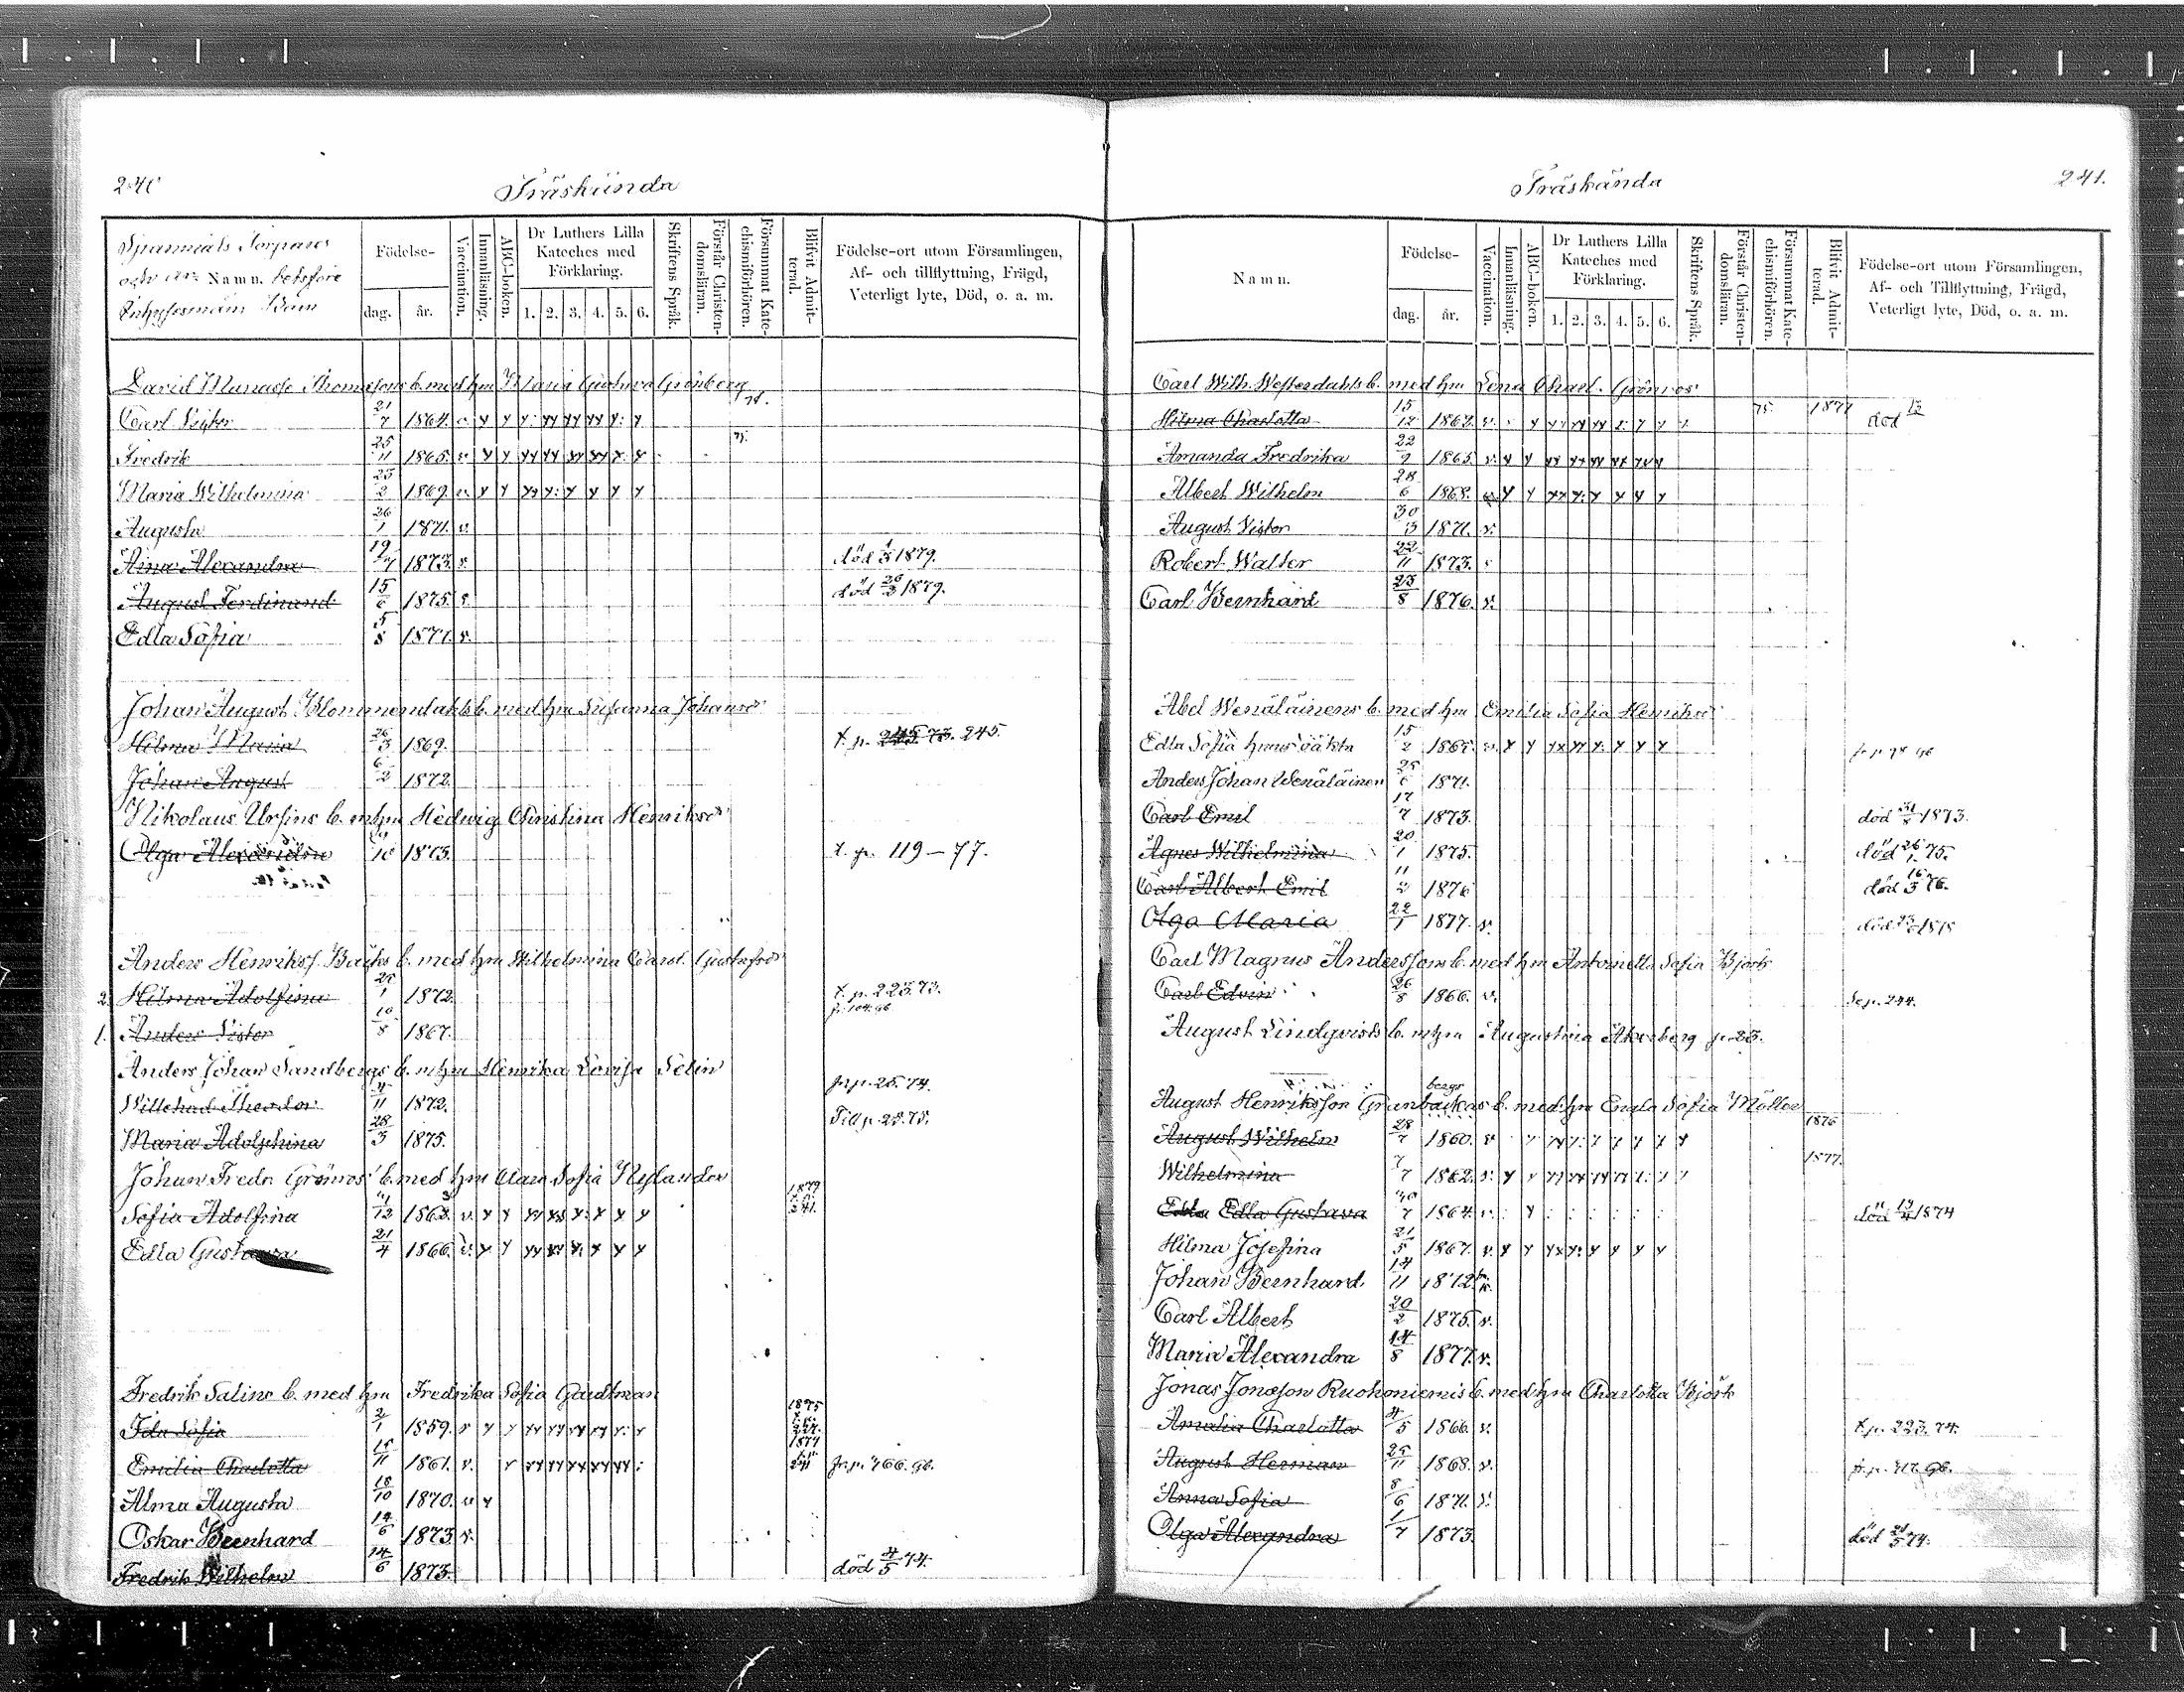 240
Träskända
Torpares
och Namn.
Inhysesmäns Barn
Födelse-
dag.
år.
Vaccination.
Innanläsning.
ABC-boken.
Dr Luthers Lilla
Kateches med
Förklaring.
1. 2. 3. 4. 5. 6.
Skriftens Språk.
Förstår Christen-
domsläran.
Försummat Kate-
chismiförhören.
Blifvit Admit-
terad.
Födelse-ort utom Församlingen,
Af- och tillflyttning, Frägd,
Veterligt lyte, Död, o. a. m.
David Manasse Thomassons b. med hu Maria Gustava Grönberg
Carl Victor 21/7 1864.
Fredrik 25/11 1865.
Maria Wilhelmina 25/2 1869.
Augusta 26/1 1871. v.
Aina Alexandra 19/7 1873. v. död 1879.
August Ferdinand 15/6 1875. v. död 26/3 1879.
Edla Sofia 5/8 1877. v.
Johan August Blommendahls b. med hu Susanna Johansd
Hilma Maria 26/3 1869. t. p. 245.
Johan August 6/2 1872.
Nikolaus Ursins b. m hu Hedwig Christina Henriksd
Olga Alexandra 1873. t. p. 119-77.
Anders Henrikss. Bäcks b. med hu Wilhelmina Carol. Gustafsd
2. Hilma Adolfina 1872. t. p. 223.73.
1. Anders Victor 10/8 1867.
Anders Johan Sandbergs b. m hu Henrika Lovisa Selin
Willehad Theodor 11 1872. fr. p. 25.74.
Maria Adolphina 28/3 1875. Till p. 28.75.
Johan Fredr Grönroos' b. med hu Clara Sofia Nylander
Sofia Adolfina 12 1863. 1879 241.
Edla Gustava 21/4 1866.
Fredrik Salins b. med hu Fredrika Sofia Gardtman
Ida Sofia 2/1 1859. 1875
Emilia Charlotta 15/11 1861. v. 1877 fr. p. 766.96.
Alma Augusta 18/10 1870.
Oskar Bernhard 14/6 1873. v.
Fredrik Wilhelm 14/6 1873. död 4/5 74.
241.
Träskända
Namn.
Födelse-
dag.
år.
Vaccination.
Innanläsning.
ABC-boken.
Dr Luthers Lilla
Kateches med
Förklaring.
1. 2. 3. 4. 5. 6.
Skriftens Språk.
Förstår Christen-
domsläran.
Försummat Kate-
chismiförhören.
Blifvit Admit-
terad.
Födelse-ort utom Församlingen,
Af- och Tillflyttning, Frägd,
Veterligt lyte, Död, o. a. m.
Carl Wilh. Westerdahls b. med hu Lena Charl. Grönroos
Hilma Charlotta 15/12 1862. död
Amanda Fredrika 22/2 1865.
Albert Wilhelm 28/6 1868.
August Victor 30/3 1871. v.
Robert Walter 22/11 1873.
Carl Bernhard 23/8 1876. v.
Abel Wenäläinens b. med hu Emilia Sofia Henriksd
Edla Sofia hnes oäkta 15/2 1865.
Anders Johan Wenäläinen 25/6 1871.
Carl Emil 17/7 1873. död 31/8 1873.
Agnes Wilhelmina 20/1 1875. död 26/1 75.
Carl Albert Emil 11/2 1876 död 16/3 76.
Olga Maria 22/1 1877. v. död
Carl Magnus Anderssons b. med hu Antoinetta Sofia Björk
Carl Edvin 26/8 1866. v. Se p. 244.
August Lindqvists b. m hu Augustina Åkerberg p. 23.
August Henriksson Granbackas b. med hu Engla Sofia Möller
August Wilhelm 28/7 1860. 1876
Wilhelmina 7/7 1862. 1877.
Edla Gustava 30/7 1864. död 12/4 1874
Hilma Josefina 21/5 1867.
Johan Bernhard 14/11 1872.
Carl Albert 20/2 1875. v.
Maria Alexandra 14/8 1877. v.
Jonas Jonasson Ruokoniemis b. med hu Charlotta Björk
Amalia Charlotta 4/5 1866. v. t. p. 223.74.
August Herman 25/11 1868. v. fr. p. 717.96.
Anna Sofia 8/6 1871. v.
Olga Alexandra 1/7 1873. död 21/5 74.